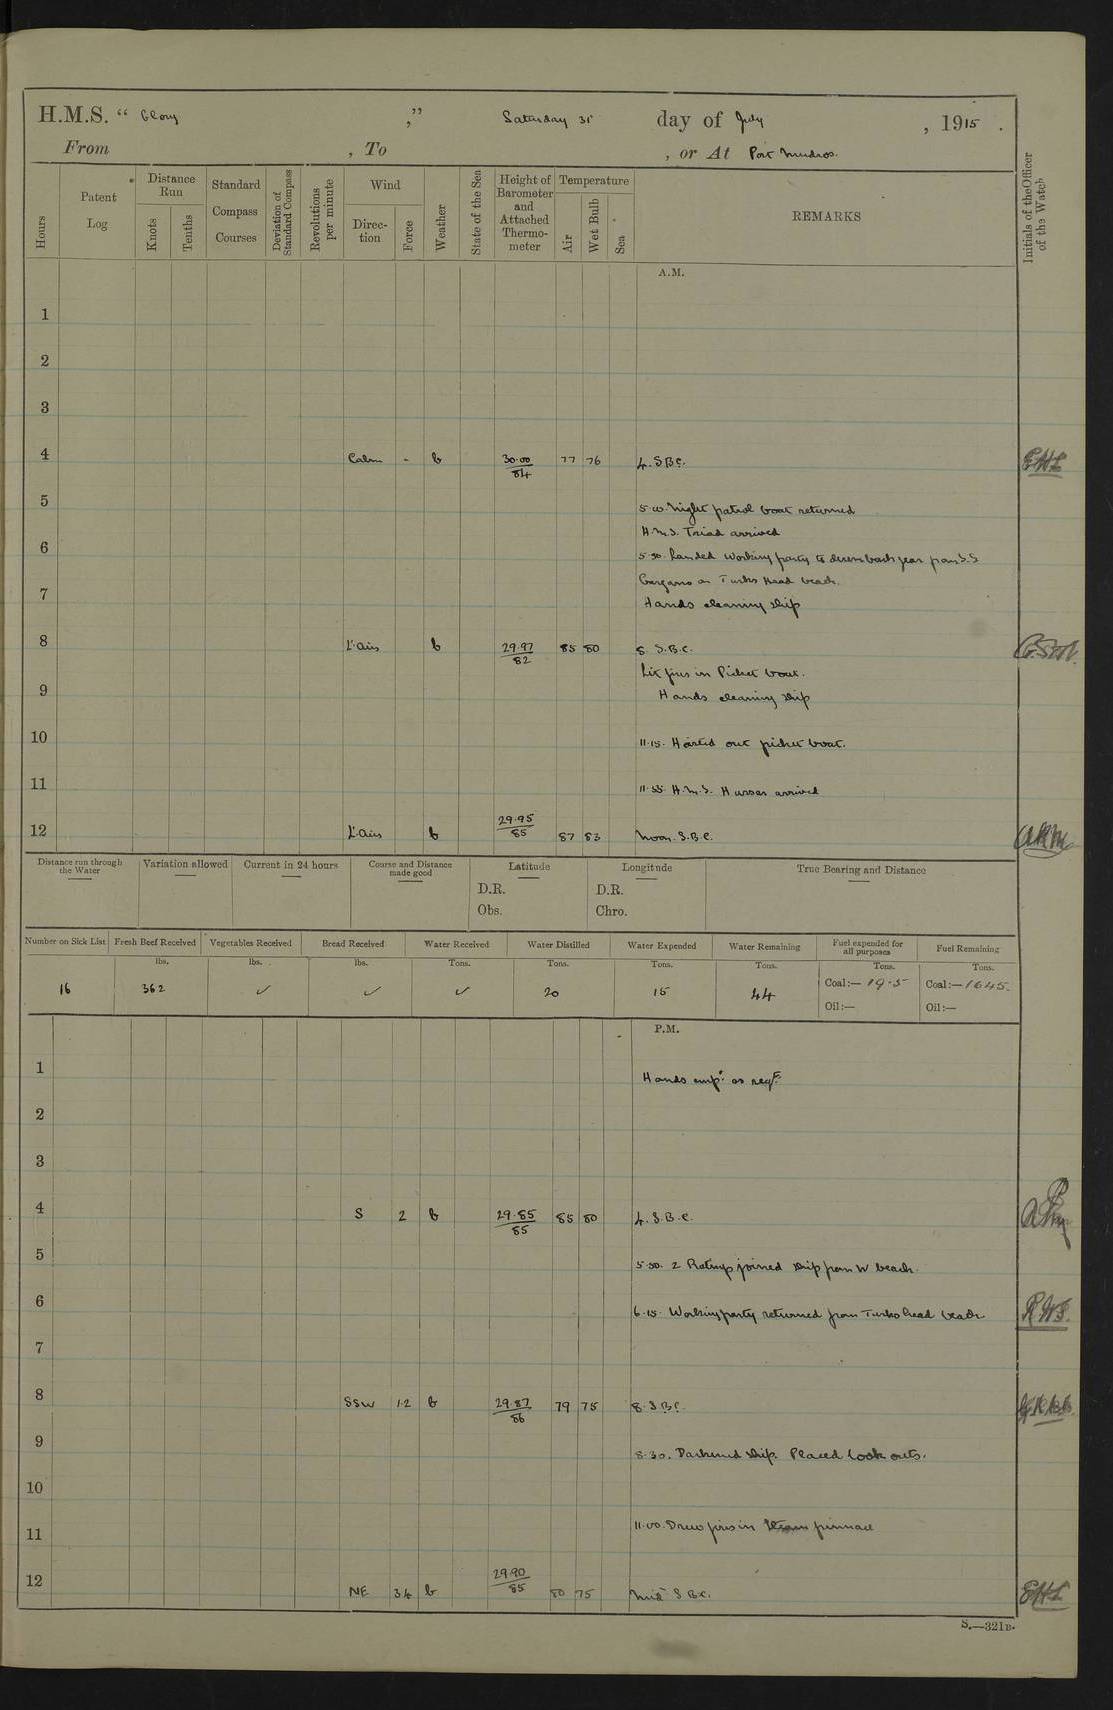 H.M.S. “ Glory ,” Saturday 31st day of July , 1915 .
From , To , or At Port Mudros.
Hours
Patent Log
Distance Run
Knots
Tenths
Standard Compass Courses
Deviation of Standard Compass
Revolutions per minute
Wind
Direction
Force
Weather
State of the Sea
Height of Barometer and Attached Thermometer
Temperature
Air
Wet Bulb
Sea
REMARKS
Initials of the Officer of the Watch
A.M.
1
2
3
4 Calm - b 30.00/84 77 76 4. S.B.C. EHL
5 5.0. Night patrol boat returned
H.M.S. Triad arrived
6 5.30. Landed working party to from S.S
on Turks Head beach.
7 Hands cleaning ship
8 Lt Airs b 29.97/82 85 80 8. S.B.C.
Lit fires in Picket boat.
9 Hands cleaning ship
10 11.15. Hoisted out picket boat.
11 11.55. H.M.S. Hussar arrived
12 Lt Airs b 29.95/85 87 83 Noon. S.B.C.
Distance run through the Water
Variation allowed
Current in 24 hours
Course and Distance made good
Latitude
D.R.
Obs.
Longitude
D.R.
Chro.
True Bearing and Distance
Number on Sick List
Fresh Beef Received
Vegetables Received
Bread Received
Water Received
Water Distilled
Water Expended
Water Remaining
Fuel expended for all purposes
Fuel Remaining
lbs. lbs. lbs. Tons. Tons. Tons. Tons. Tons. Tons.
16 362 ✓ ✓ ✓ 20 15 44 Coal:— 19.5 Coal:— 1645.
Oil:— Oil:—
P.M.
1 Hands empd as reqd.
2
3
4 S 2 b 29.85/85 85 80 4. S.B.C.
5 5.30. 2 Ratings joined ship from W beach.
6 6.15. Working party returned from Turks head beach RWS.
7
8 SSW 1.2 b 29.87/86 79 75 8. S.B.C.
9 8.30. Darkened ship. Placed look outs.
10
11 11.00. Drew fires in Steam pinnace
12 NE 3.4 b 29.90/85 80 75 Midt S.B.C. EHL
S.—321B.